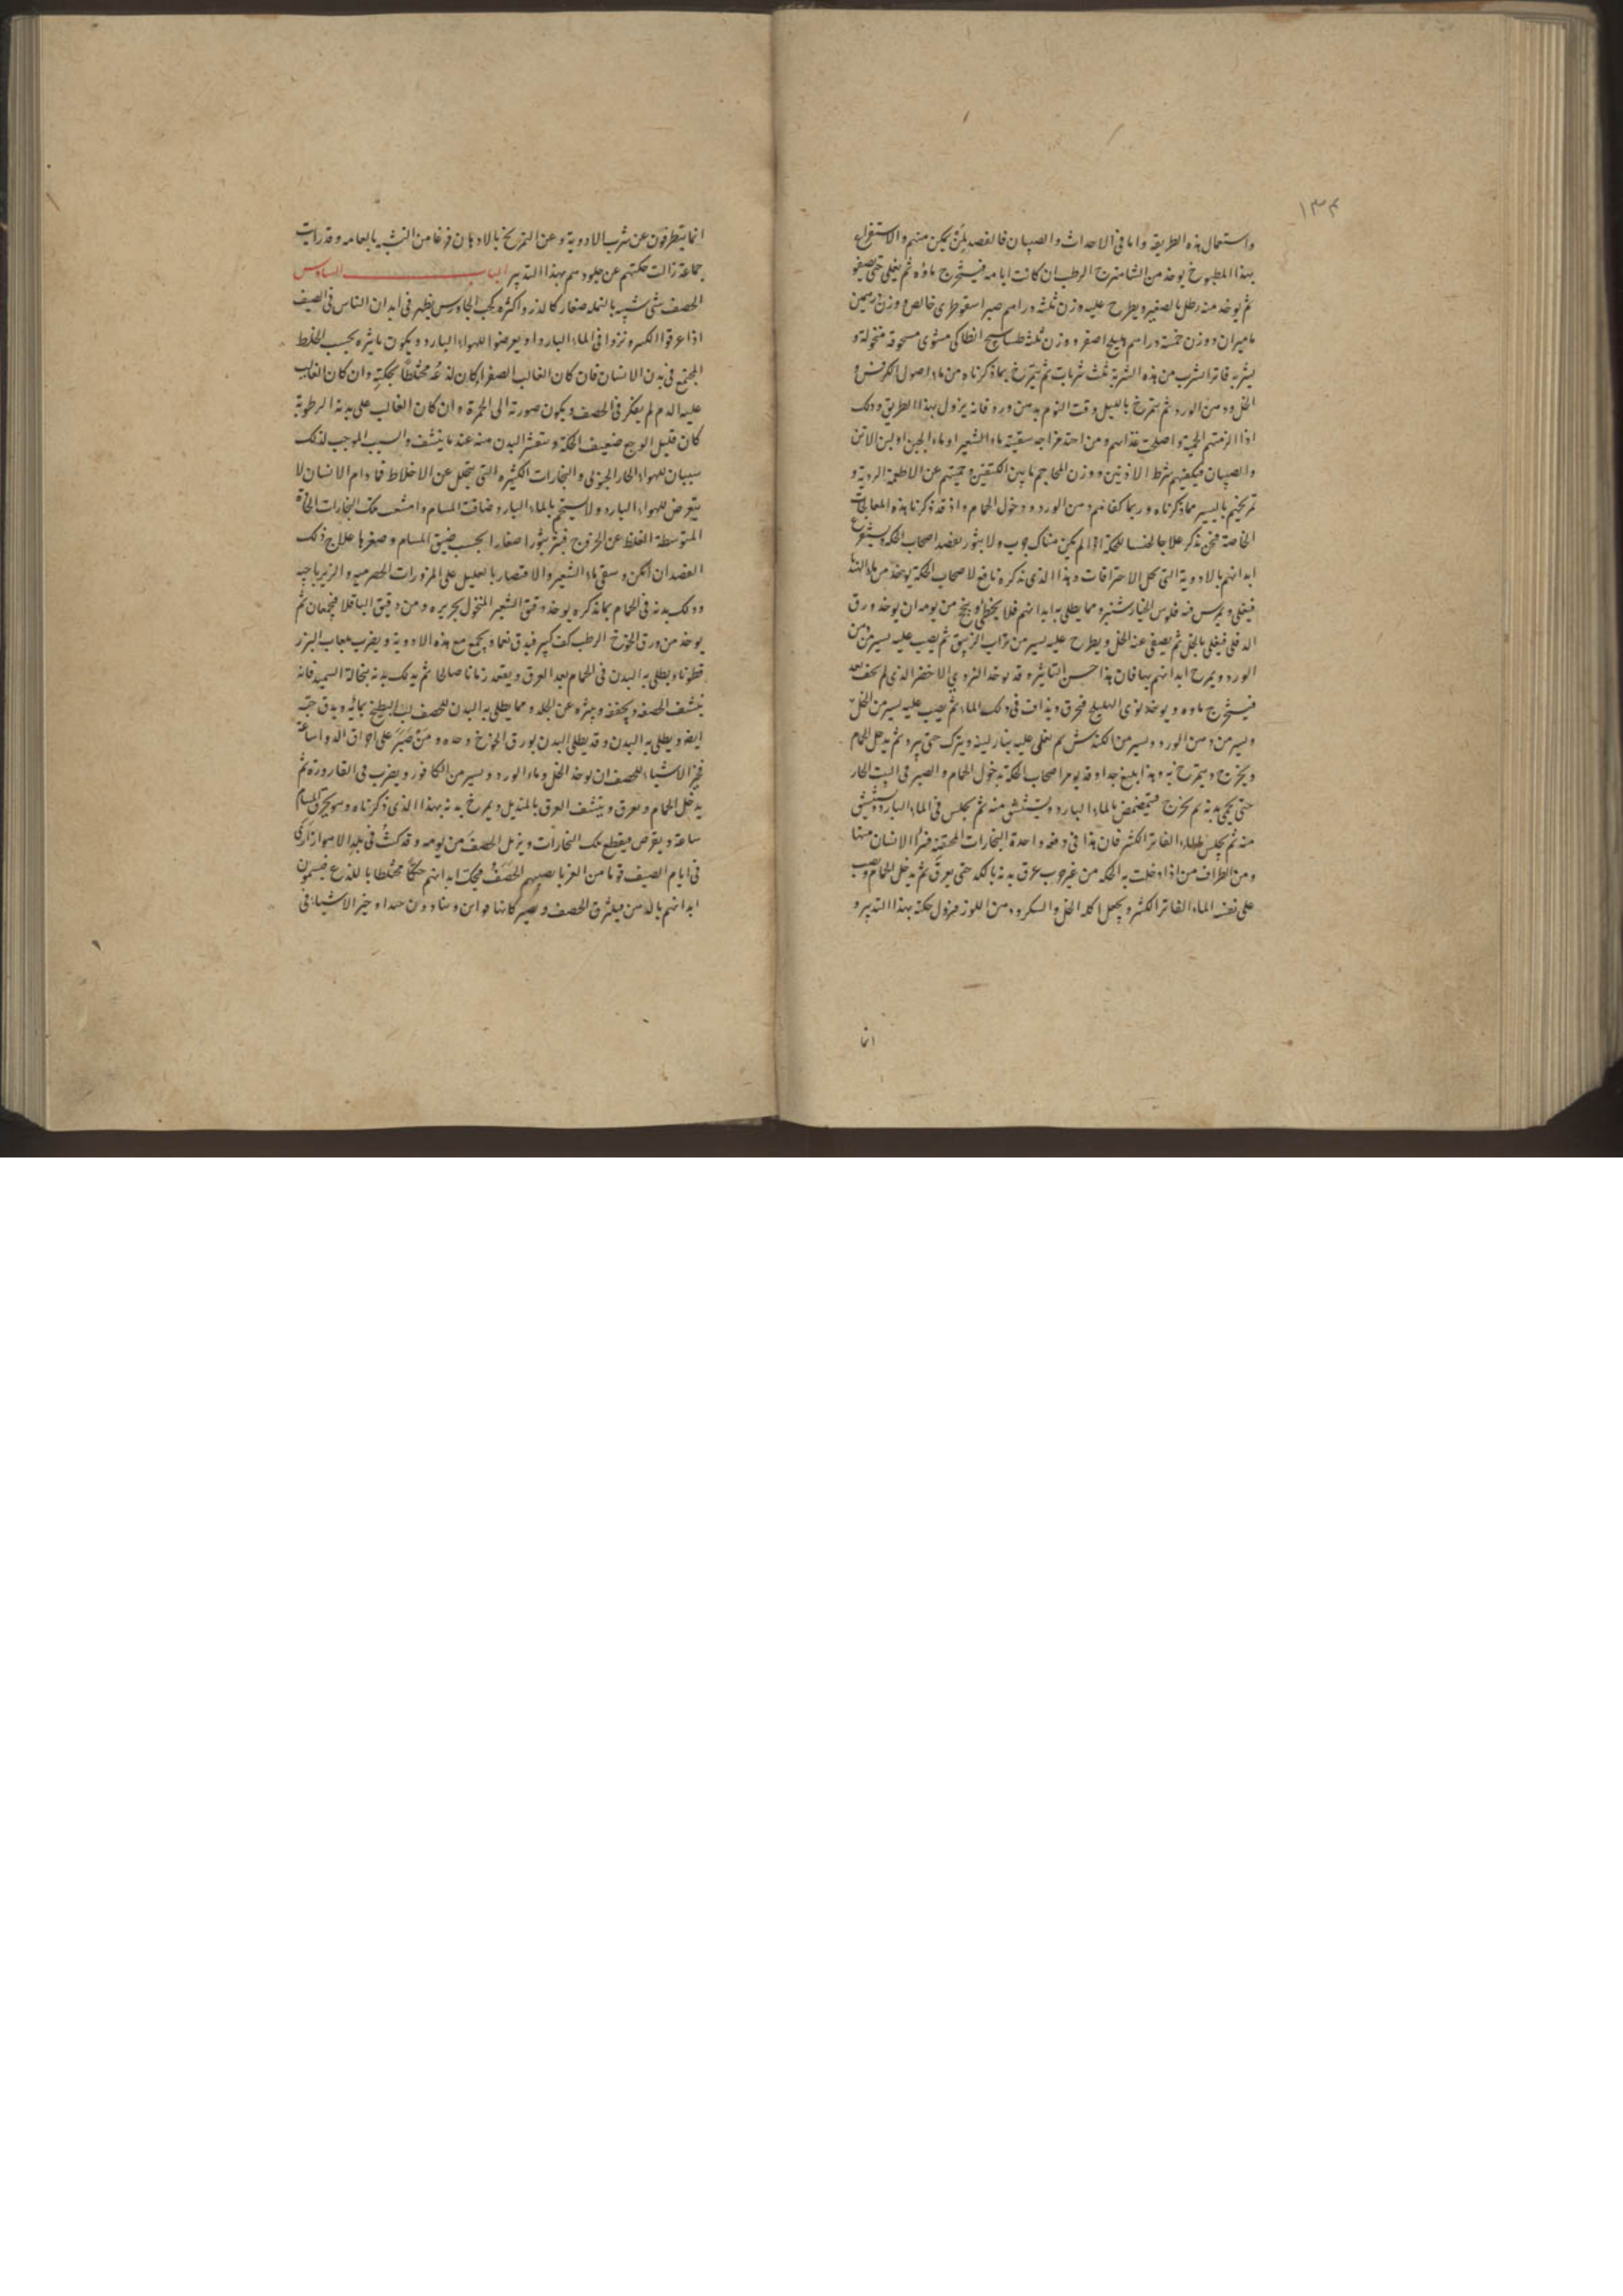 ١٣٤
واستعمال هذه الطريقة واما فى الاحداث والصبيان فالفصد لمن يمكن منهم والاستفراغ
بهذا المطبوخ يوخذ من الشاهترج الرطب ان كانت ايامه فيستخرج ماؤه ثم يغلى حتى يصفو
ثم يوخذ منه رطل بالصغير ويطرح عليه وزن ثلثة دراهم صبر اسقوطرى خالص ووزن درهمين
ماميران ووزن خمسة دراهم هليلج اصفر ووزن ثلثة انطاكى مشوى مسحوقة منخولة و
يشربه فاترا يشرب من هذه الشربة ثلث شربات ثم يتمرخ بما ذكرناه من ماء اصول الكرفس و
الخل ودهن الورد ثم يتمرخ بالليل وقت النوم بدهن ورد فانه يزول بهذا الطريق وذلك
اذا الزمتهم الحمية واصلحت غذاهم ومن احتد مزاجه سقيته ماء الشعير او ماء الجبن او لبن الاتن
والصبيان فيكفيهم شرط الاذنين ووزن المحاجم ما بين الكتفين وحميتهم عن الاطعمة الردية و
تمريخهم باليسير مما ذكرناه وربما كفاهم دهن الورد ودخول الحمام واذ قد ذكرنا هذه المعالجات
الخاصة فنحن نذكر علاجا للحكة اذا لم يكن هناك جرب ولا بثور يفصد اصحاب الحكة ويستفرغ
ابدانهم بالادوية التى تحل الاحتراقات وهذا الذى نذكره نافع لاصحاب الحكة يوخذ من ماء الهندبا
فيغلى ويمرس فيه فلوس الخيارشنبر ومما يطلى به ابدانهم فلا يخطى وينجح من يومه ان يوخذ ورق
الدفلى فيغلى بالخل ثم يصفى عنه الخل ويطرح عليه يسير من تراب الزيبق ثم يصب عليه يسير من دهن
الورد ويمرخ ابدانهم بها فان هذا حسن التاثير وقد يوخذ الاخضر الذى لم يجف بعد
فيستخرج ماوه ويوخذ نوى الهليلج فيحرق ويذاف فى ذلك الماء ثم يصب عليه يسير من الخل
ويسير من دهن الورد ويسير من الكندش ثم يغلى عليه بنار لينة ويترك حتى يبرد ثم يدخل الحمام
ويخرج ويتمرخ به وهذا بليغ جدا وقد يومر اصحاب الحكة بدخول الحمام والصبر فى البيت الحار
حتى يحمى بدنه ثم يخرج فيتمضمض بالماء البارد ويستنشق منه ثم يجلس فى الماء البارد ويستنشق
منه ثم يجلس الفاتر الكثير فان هذا فى دفعة واحدة البخارات المحتقنة فيبرأ الانسان منها
ومن الطراف من اذا دخلت به الحكة من غير جرب عرق بدنه بالكد حتى يعرق ثم يدخل الحمام ويصب
على نفسه الماء الفاتر الكثير ويجعل اكله الخل والسكر ودهن اللوز فيزول حكته بهذا التدبير و
انما
انما يتطرقون عن شرب الادوية وعن التمريخ بالادهان فرغا من التشبه بالعامه وقد رايت
جماعة زالت حكتهم عن جلودهم بهذا التدبير الباب السادس
الحصف شى شبيه بالنمله صغار كالذر واكثره كحب الجاورس يظهر فى ابدان الناس فى الصيف
اذا عرقوا الكثير ونزلوا فى الماء البارد او تعرضوا للهواء البارد ويكون تاثيره بحسب الخلط
المجتمع فى بدن الانسان فان كان الغالب الصفراء كان لذعه مختلطا بحكة وان كان الغالب
عليه الدم لم يفكر فى الحصف ويكون صورته الى الحمرة وان كان الغالب على بدنه الرطوبة
كان قليل الوجع ضعيف الحكة ويتقشر البدن منه عند ما ينشف والسبب الموجب لذلك
سببان للهواء الحار الجنوبى والبخارات الكثيره التى تتحلل عن الاخلاط فما دام الانسان لا
يتعرض للهواء البارد ولا يستحم بالماء البارد ضاقت المسام وامتنعت تلك البخارات الحارة
المتوسطة الغلظ عن الخروج فبثر بثورا صغارا بحسب ضيق المسام وصغرها علاج ذلك
الفصد ان امكن وسقى ماء الشعير والاقتصار بالعليل على المزورات الحصرميه والزيرباجيه
ودلك بدنه فى الحمام بما نذكره يوخذ دقيق الشعير المنخول بحريره ومن دقيق الباقلا فيجمعان ثم
يوخذ من ورق الخوخ الرطب كف كبير فيدق نعما ويجمع مع هذه الادوية ويضرب بلعاب البزر
قطونا ويطلى به البدن فى الحمام بعد العرق ويقعد زمانا صالحا ثم يدلك بدنه بنخالة السميد فانه
ينشف الحصف ويجففه وينثره عن الجلد ومما يطلى به البدن للحصف لب البطيخ بمائه ويدق حبه
ايضا ويطلى به البدن وقد يطلى البدن بورق الخوخ وحده ومن صبر على احراق الدواء ساعة
فخير الاشياء للحصف ان يوخذ الخل وماء الورد ويسير من الكافور ويضرب فى القارورة ثم
يدخل الحمام ويعرق وينشف العرق بالمنديل ويمرخ بدنه بهذا الذى ذكرناه وهو يحرق المسام
ساعة ويقرص فيقطع تلك البخارات ويزيل الحصف من يومه وقد كنت فى بلد الاهواز ارى
فى ايام الصيف قوما من الغربا يصيبهم الحصف فيحك ابدانهم حكا مختلطا باللذع فيسمون
ابدانهم بالدهن فيتقرح الحصف ويصير كانها قوابى ويتاذون جدا وخير الاشياء فى